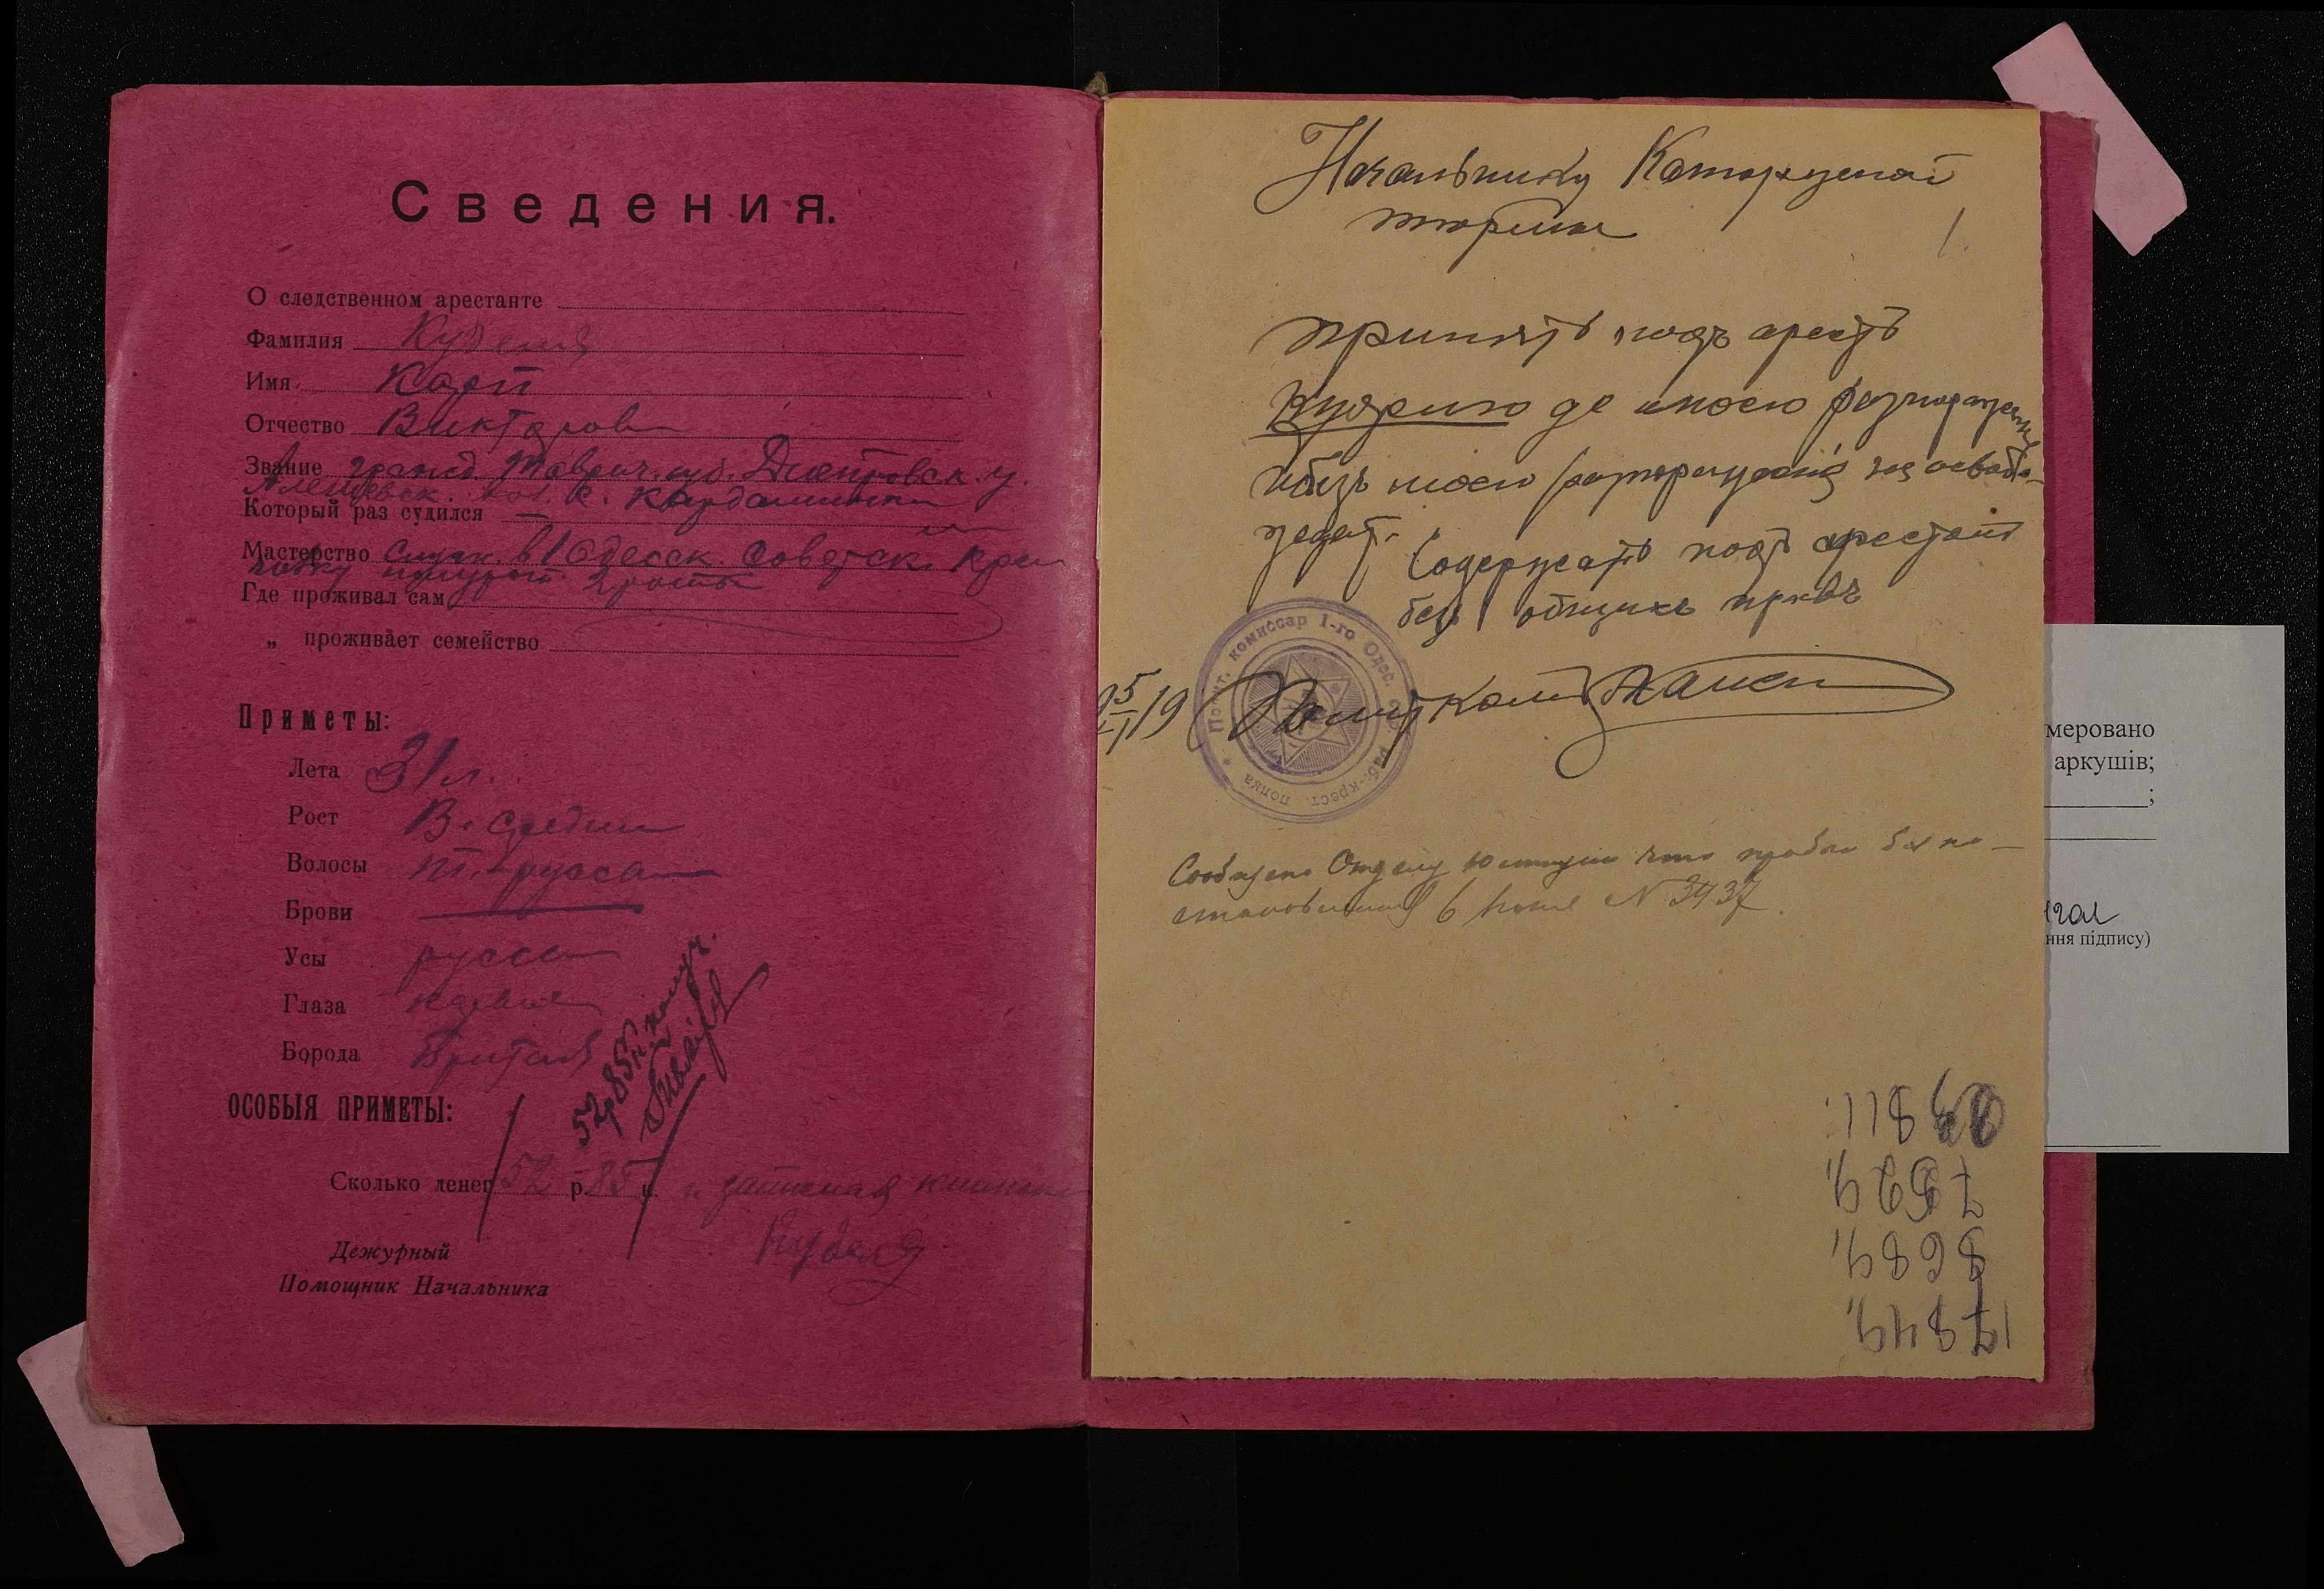 Сведения.
О следственном арестанте
Фамилия Куделя
Имя Карп
Отчество Викторов
Звание гражд. Таврич. губ. Днепровск. у.
Алешевск. вол. с. Кардашинки
Который раз судился
Мастерство служ. в 1 Одесск. Советск. Крес
Где проживал сам 2 роты
„ проживает семейство
Приметы:
Лета 31 л.
Рост В. средни
Волосы т. русса
Брови
Усы русса
Глаза карие
Борода бритая
ОСОБЫЯ ПРИМЕТЫ:
52р 85к получ.
Сколько денег 52 р. 85 к. и записная книжка
Куделя
Дежурный
Помощник Начальника
Начальнику Каторжной
тюрьмы
1.
Принять под арестъ
до моего распоряжения
без моего распоряжения не освобо-
ждать. Содержать под арестом
без общих правъ
25/VI 19 Полит Ком
Полит. комиссар 1-го Одес. раб.-крест. полка
Сообщено Отделу юстиции что прибыл без по-
становления 6 июня № 3937
811.
7529.
8689.
17849.
меровано
аркушів;
;
ння підпису)